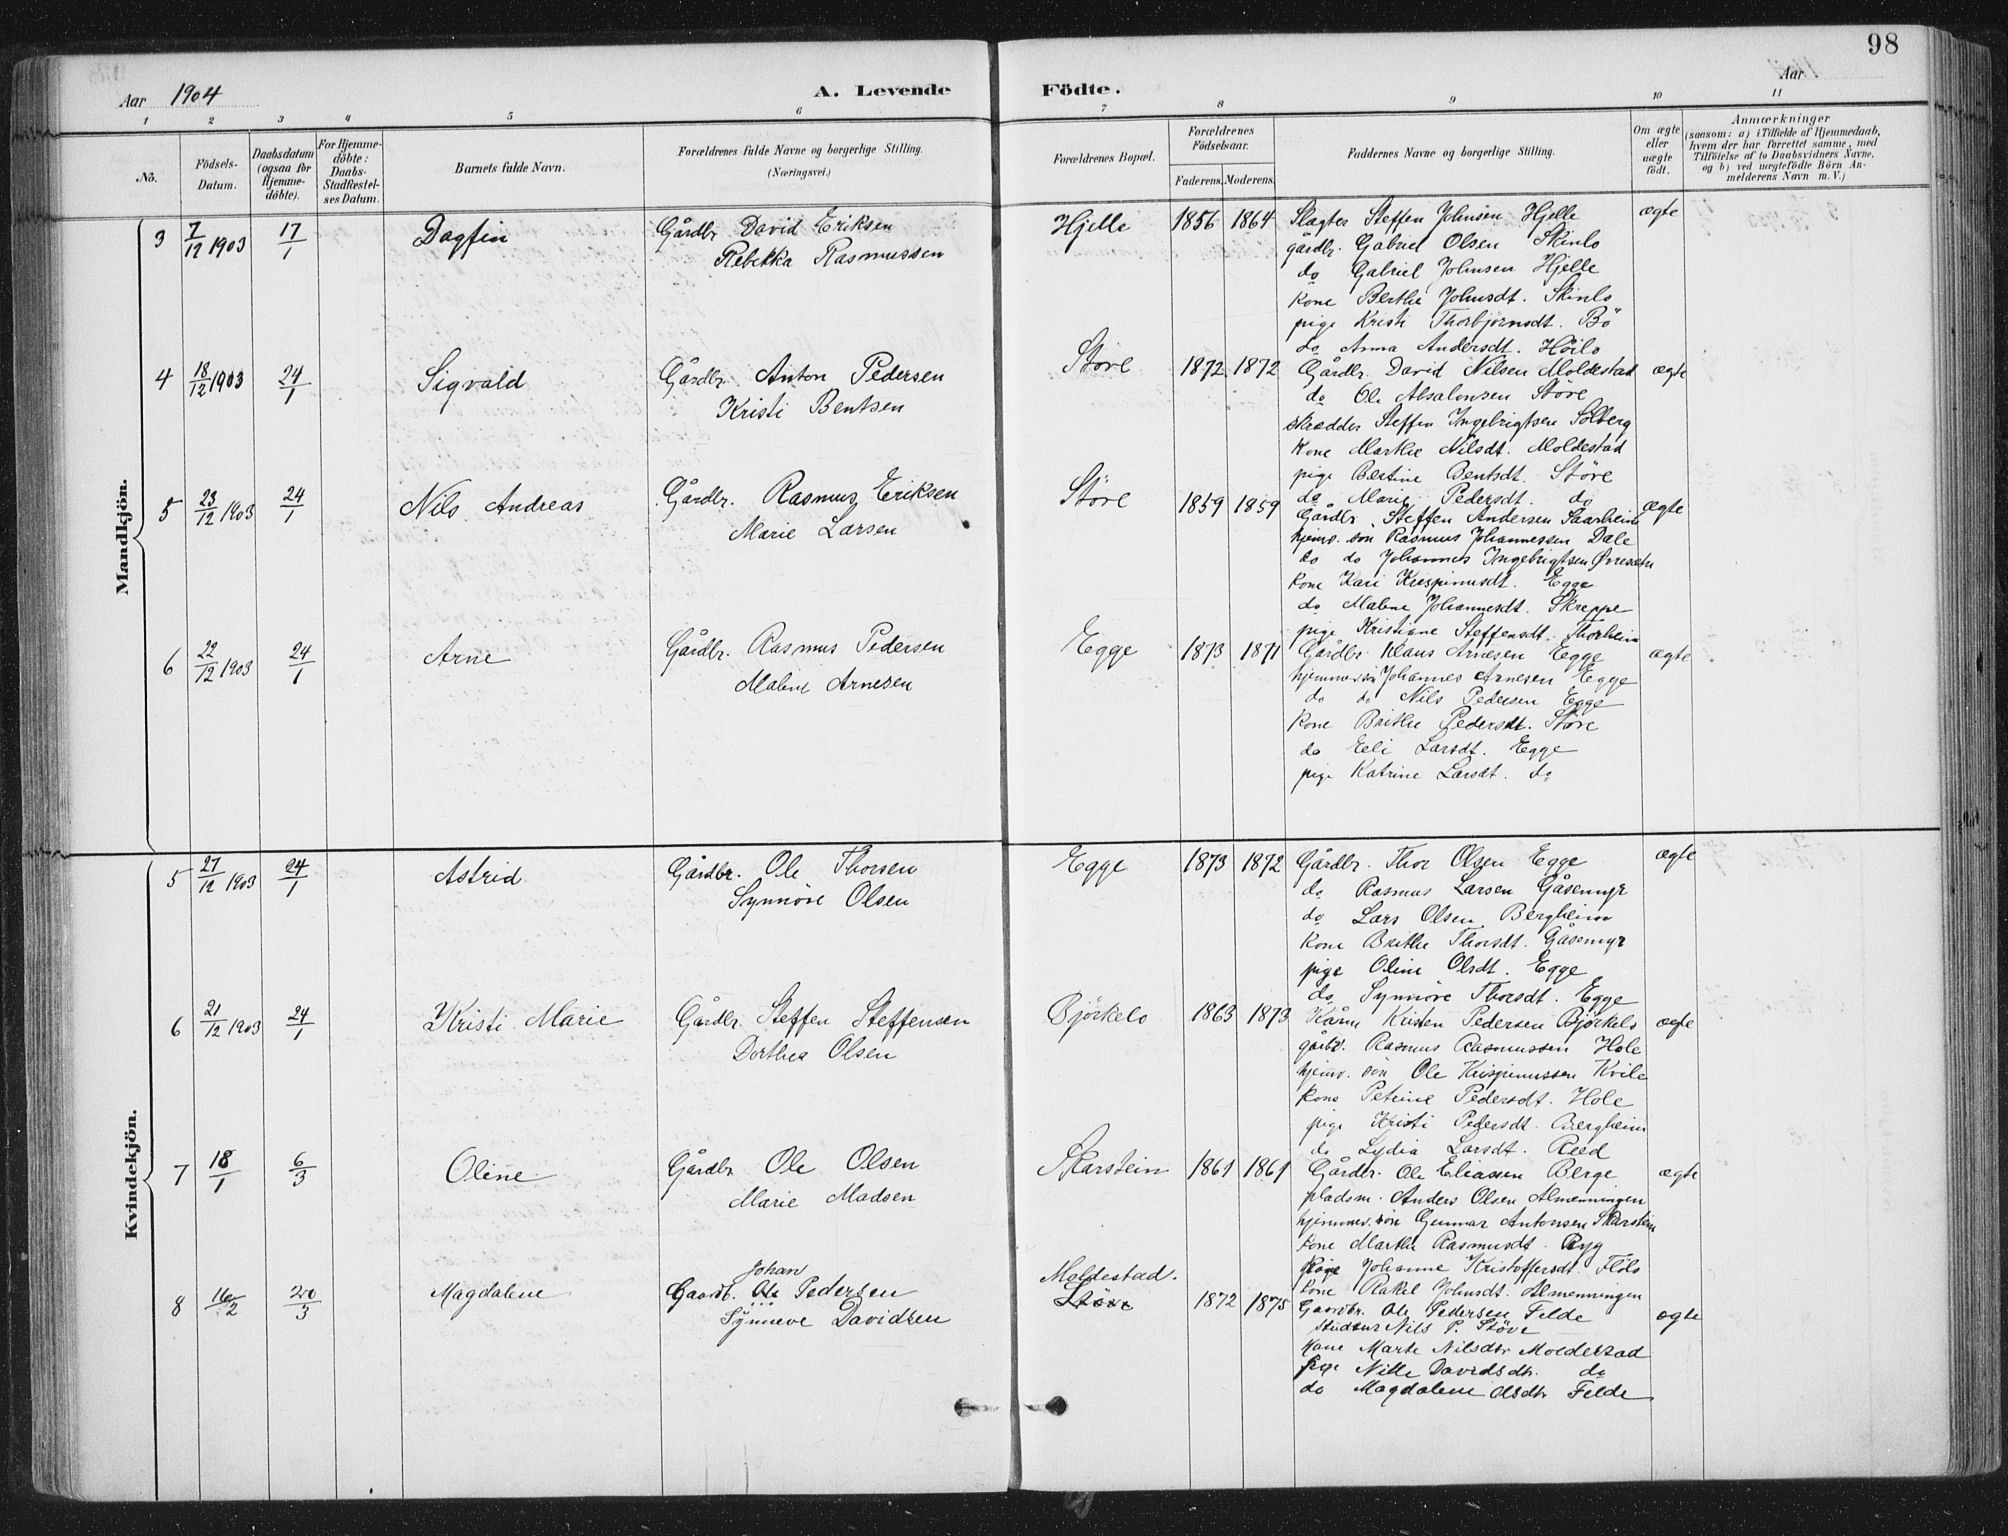 98
Aar 1904
A. Levende Födte.
Aar
1 2 3 4 5 6 7 8 9 10 11
No.
Födsels-Datum.
Daabsdatum (ogsaa for Hjemme-döbte).
For Hjemme-döbte: Daabs-Stadfæstel-ses Datum.
Barnets fulde Navn.
Forældrenes fulde Navne og borgerlige Stilling.
(Næringsvei.)
Forældrenes Bopæl.
Forældrenes Födselsaar.
Faderens. Moderens.
Faddernes Navne og borgerlige Stilling.
Om ægte eller uægte födt.
Anmærkninger
(saasom: a) i Tilfælde af Hjemmedaab, hvem der har forrettet samme, med Tilföielse af to Daabsvidners Navne, og b) ved uægtefödte Börn An-melderens Navn m. V.)
Mandkjön.
3 7/12 1903 17/1 Dagfin Gårdbr David Eriksen Hjelle 1856 1864 Slagter Steffen Johnsen Hjelle ægte
Rebekka Rasmussen gårdbr. Gabriel Olsen Skinlo
do Gabriel Johnsen Hjelle
kone Berthe Johnsdt. Skinlo
pige Kristi Thorbjørnsdt. Bö
do Anna Andersdt. Höilo
4 18/12 1903 24/1 Sigvald Gårdbr. Anton Pedersen Störe 1872 1872 Gårdbr. David Nilsen Moldestad ægte
Kristi Bentsen do Ole Absalonsen Störe
skrædder Steffen Ingebrigtsen Solberg
kone Marthe Nilsdt. Moldestad
pige Bertine Bentsdt. Störe
do Marie Pedersdt. do
5 23/12 1903 24/1 Nils Andreas Gårdbr. Rasmus Eriksen Störe 1859 1859 Gårdbr. Steffen Andersen Saarheim ægte
Marie Larsen hjemv. sön Rasmus Johannessen Dale
do do Johannes Ingebrigtsen Øvresætr
kone Kari Krispinusdt. Egge
do Malene Johannesdt. Skreppe
pige Kristiane Steffensdt. Thorheim
6 22/12 1903 24/1 Arne Gårdbr. Rasmus Pedersen Egge 1873 1871 Gårdbr. Klaus Arnesen Egge ægte
Malene Arnesen hjemmev. sön Johannes Arnesen Egge
do do Nils Pedersen Egge
kone Brithe Pedersdt. Störe
do Eli Larsdt. Egge
pige Katrine Larsdt. do
Kvindekjön.
5 27/12 1903 24/1 Astrid Gårdbr. Ole Thorsen Egge 1873 1872 Gårdbr. Thor Olsen Egge ægte
Synnöve Olsen do Rasmus Larsen Gåsemyr
do Lars Olsen Bergheim
kone Brithe Thorsdt. Gåsemyr
pige Oline Olsdt. Egge
do Synnöve Thorsdt. Egge
6 21/12 1903 24/1 Kristi Marie Gårdbr. Steffen Steffensen Björkelo 1863 1873 Kårm Kristen Pedersen Björkelo ægte
Dorthea Olsen gårdbr. Rasmus Rasmussen Hole
hjemv. sön Ole Krispinussen Kvile
kone Petrine Pedersdt. Hole
pige Kristi Pedersdt. Bergheim
do Lydia Larsdt. Reed
7 18/1 6/3 Oline Gårdbr Ole Olsen Skarstein 1861 1861 Gårdbr. Ole Eliassen Berge ægte
Marie Madsen pladsm. Anders Olsen Almenningen
hjemmev. sön Gunnar Antonsen Skarstein
kone Marthe Rasmusdt. Ryg
pige Johanne Kristoffersdt. Flölo
kone Rakel Johnsdt. Almenningen
8 16/2 20/3 Magdalene Gaardb. Ole Johan Pedersen Moldestad. Störe 1872 1875 Gaardbr. Ole Pedersen Felde ægte
Synneve Davidsen Nils P. Støve
Kone Marte Nilsdtr Moldestad
pige Nille Davidsdtr. do
do Magdalene Olsdtr Felde